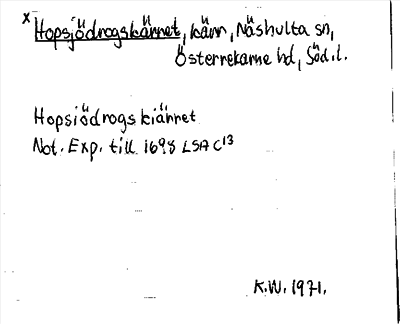 x Hopsjödrogskärret, kärr, Näshulta sn,
Österrekarne hd, Söd.l.
Hopsiödrogs kiärret
Not. Exp. till 1698 LSA C13
K.W. 1971.